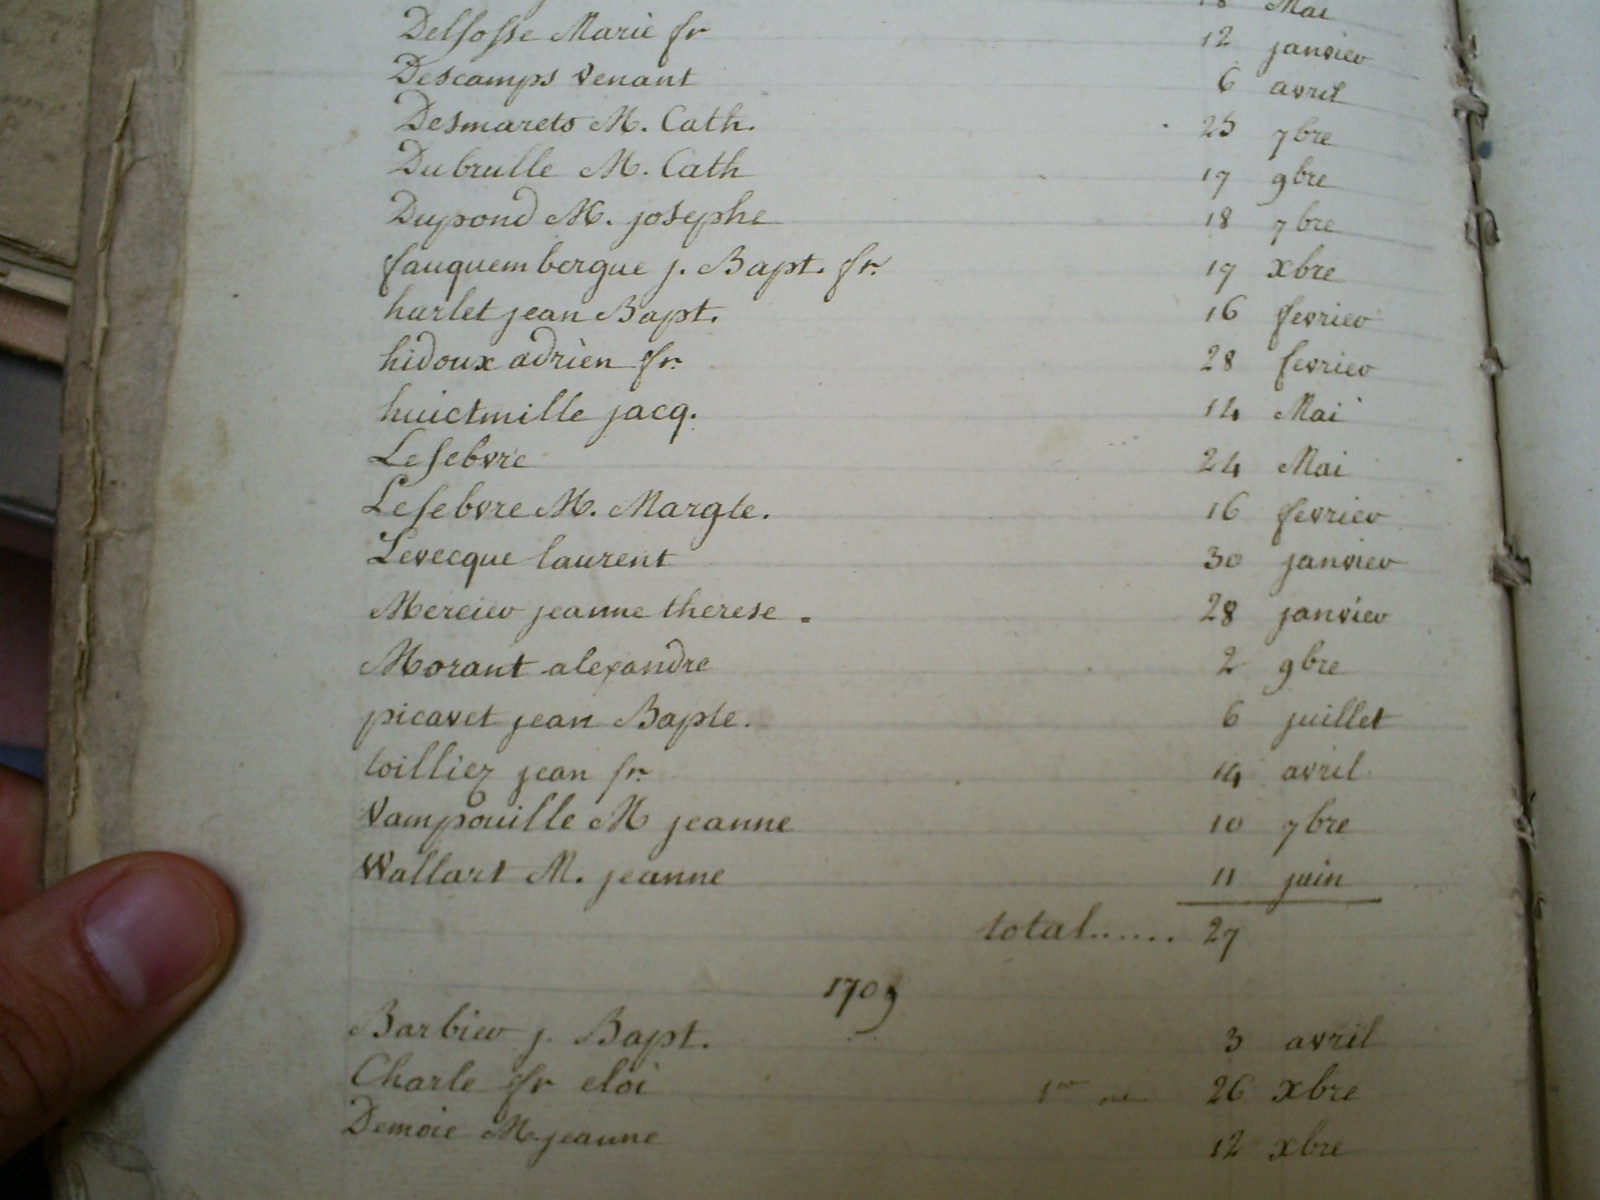 18 Mai
Delfosse Marie fr 12 janvier
Descamps venant 6 avril
Desmarets M. Cath. 25 7bre
Dubrulle M. Cath 17 9bre
Dupond M. josephe 18 7bre
fauquembergue j. Bapt. fr. 17 xbre
harlet jean Bapt. 16 fevrier
hidoux adrien fr. 28 fevrier
huictmille jacq. 14 Mai
Lefebvre 24 Mai
Lefebvre M. Margte. 16 fevrier
Levecque laurent 30 janvier
Mercier jeanne therese. 28 janvier
Morant alexandre 2 9bre
picavet jean Bapte. 6 juillet
toilliez jean fr. 14 avril
Vampouille M jeanne 10 7bre
Wallart M. jeanne 11 juin
total...... 27
1709
Barbier j. Bapt. 3 avril
Charle fr eloi 26 xbre
Demoie M. jeanne 12 xbre